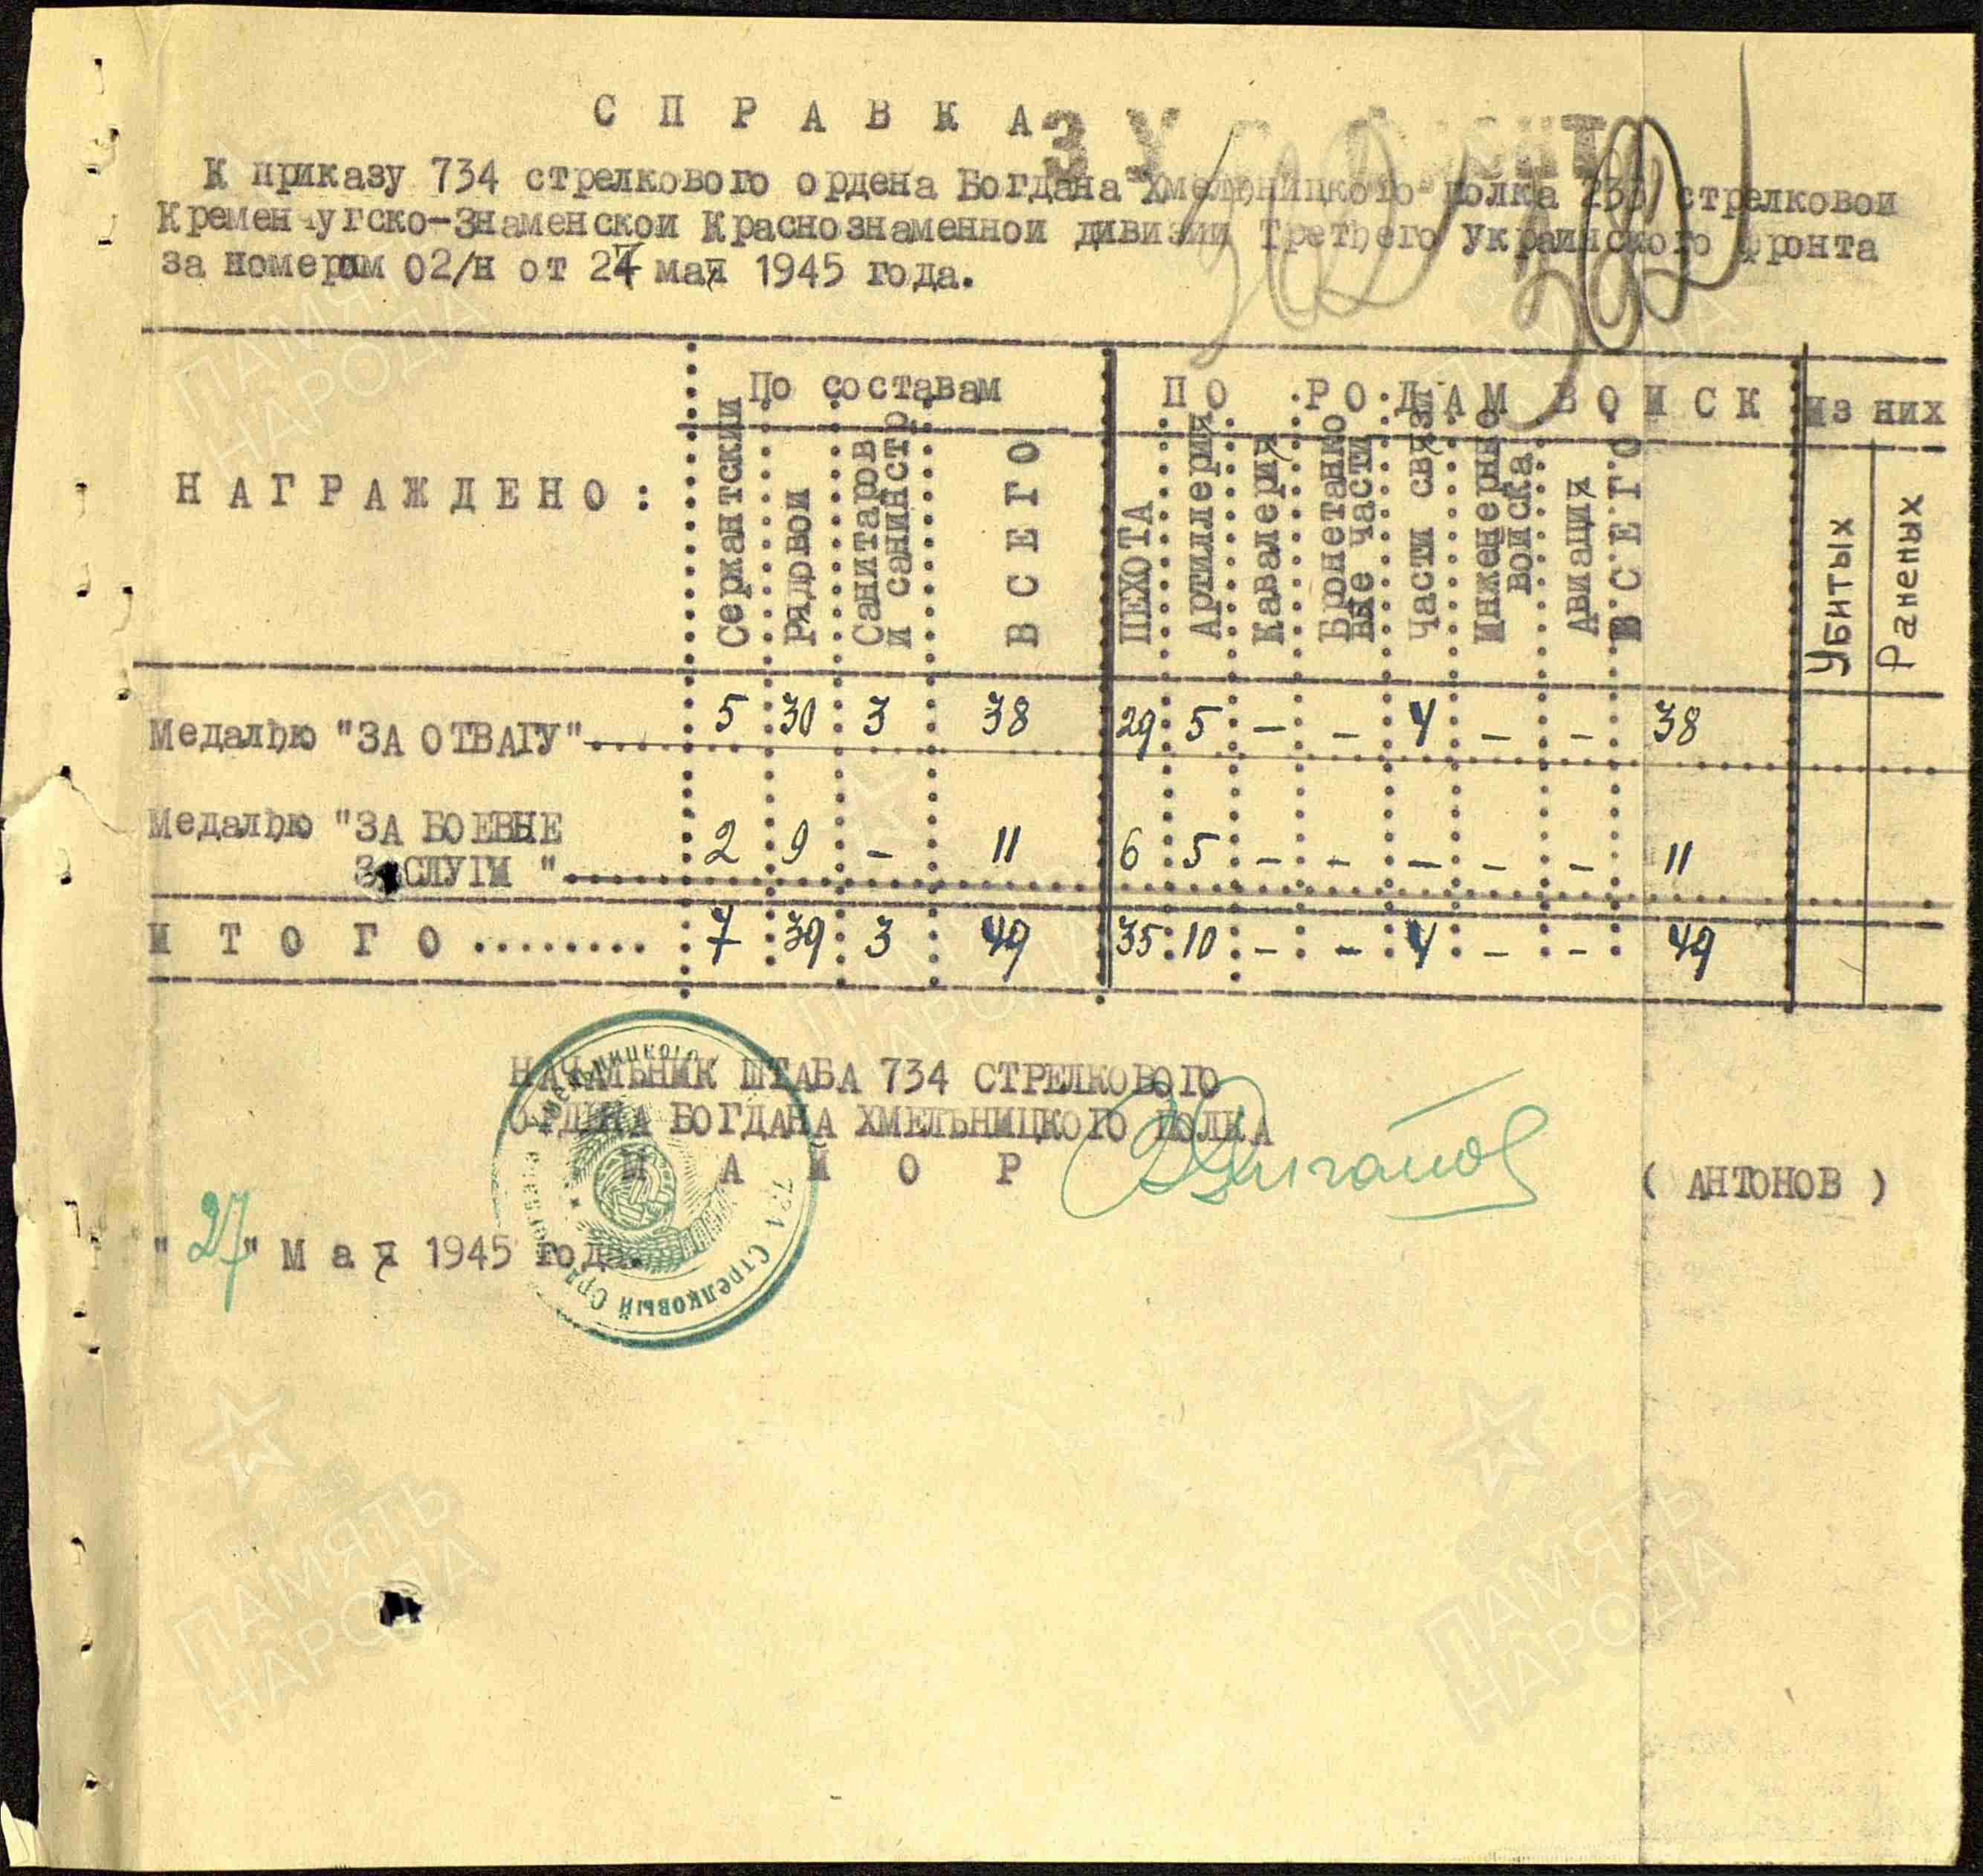 СПРАВКА
К приказу 734 стрелкового ордена Богдана Хмельницкого полка 233 стрелковой
Кременчугско-Знаменской Краснознаменной дивизии Третьего Украинского фронта
за номером 02/н от 27 мая 1945 года.
НАГРАЖДЕНО: По составам ПО РОДАМ ВОЙСК Из них
Сержантский Рядовой Санитаров и санинстр ВСЕГО ПЕХОТА Артиллерия Кавалерия Бронетанковые части Части связи Инженерные войска Авиация ВСЕГО Убитых Раненых
Медалью "ЗА ОТВАГУ"..... 5 30 3 38 29 5 - - 4 - - 38
Медалью "ЗА БОЕВЫЕ
ЗАСЛУГИ "..... 2 9 - 11 6 5 - - - - - 11
ИТОГО........ 7 39 3 49 35 10 - - 4 - - 49
НАЧАЛЬНИК ШТАБА 734 СТРЕЛКОВОГО
ОРДЕНА БОГДАНА ХМЕЛЬНИЦКОГО ПОЛКА
МАЙОР ( АНТОНОВ )
"27" Мая 1945 года.
734 Стрелковый
Хмельницкого
ПАМЯТЬ
НАРОДА
ПАМЯТЬ
НАРОДА